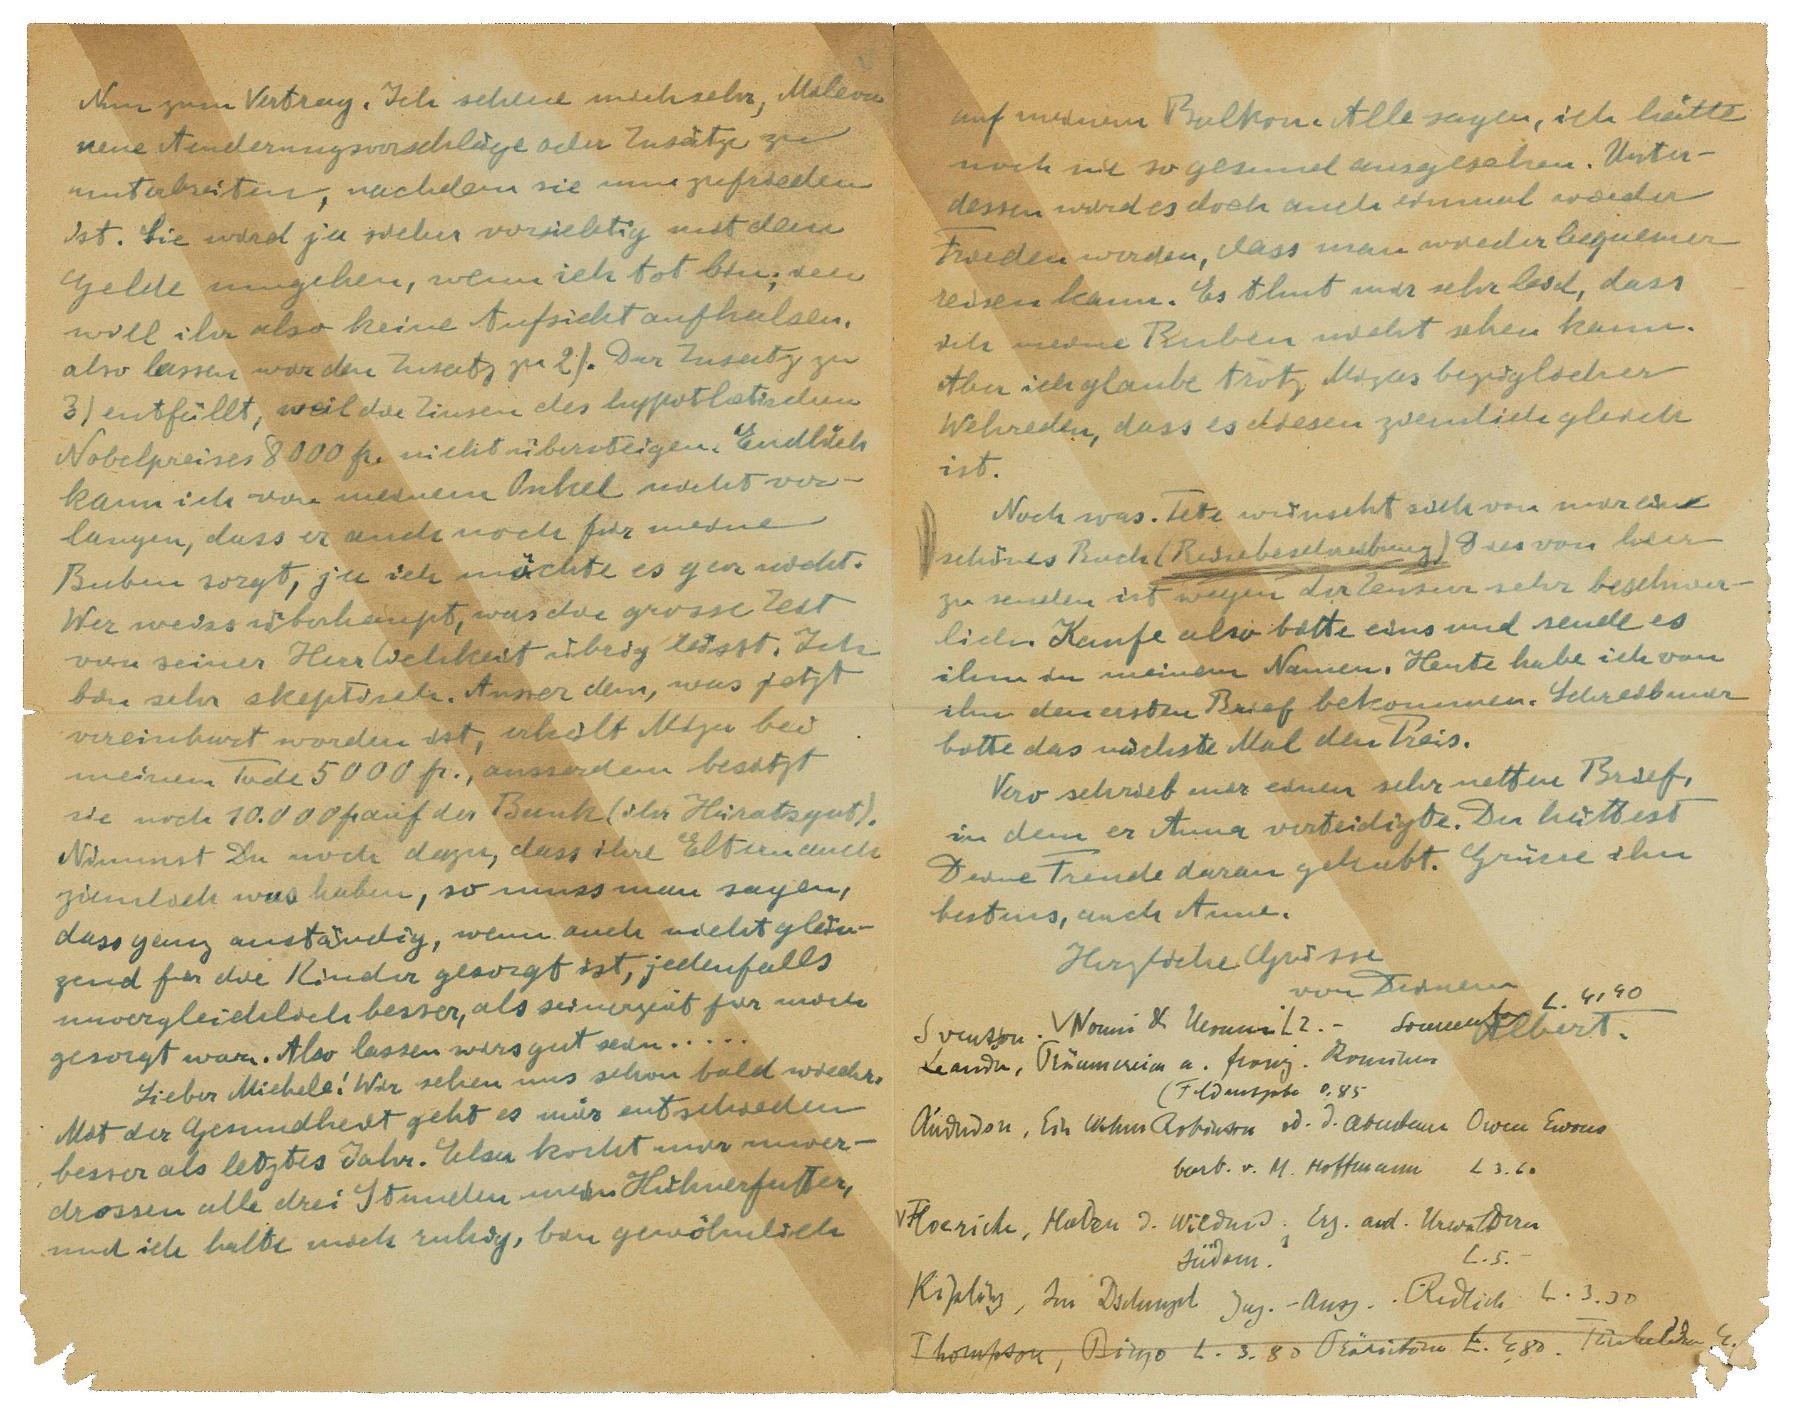 Nun zum Vertrag. Ich scheue mich sehr, Mileva
neue Aenderungsvorschläge oder Zusätze zu
unterbreiten, nachdem sie nun zufrieden
ist. Sie wird ja sicher vorsichtig mit dem
Gelde umgehen, wenn ich tot bin; ich
will ihr also keine Aufsicht aufhalsen.
also lassen wir den Zusatz zu 2). Der Zusatz zu
3) entfällt, weil die Zinsen des hypothetischen
Nobelpreises 8000 fr. nicht übersteigen. Endlich
kann ich von meinem Onkel nicht ver-
langen, dass er auch noch für meine
Buben sorgt, ja ich möchte es gar nicht.
Wer weiss überhaupt, was die grosse Zeit
von seiner Herrlichkeit übrig lässt. Ich
bin sehr skeptisch. Ausser dem, was jetzt
vereinbart worden ist, erhält Miza bei
meinem Tode 5000 fr., ausserdem besitzt
sie noch 10.000 fr auf der Bank (ihr Heiratsgut).
Nimmst Du noch dazu, dass ihre Eltern auch
ziemlich was haben, so muss man sagen,
dass ganz anständig, wenn auch nicht glän-
zend für die Kinder gesorgt ist, jedenfalls
unvergleichlich besser, als seinerzeit für mich
gesorgt war. Also lassen wirs gut sein.....
Lieber Michele! Wir sehen uns schon bald wieder.
Mit der Gesundheit geht es mir entschieden
besser als letztes Jahr. Elsa kocht mir unver-
drossen alle drei Stunden mein Hühnerfutter,
und ich halte mich ruhig, bin gewöhnlich
auf meinem Balkon. Alle sagen, ich hätte
noch nie so gesund ausgesehen. Unter-
dessen wird es doch auch einmal wieder
Frieden werden, dass man wieder bequemer
reisen kann. Es thut mir sehr leid, dass
ich meine Buben nicht sehen kann.
Aber ich glaube trotz Mizas bezüglicher
Wehreden, dass es diesen ziemlich gleich
ist.
Noch was. Tete wünscht sich von mir ein
schönes Buch (Reisebeschreibung) Dies von hier
zu senden ist wegen der Zensur sehr beschwer-
lich. Kaufe also bitte eins und sende es
ihm in meinem Namen. Heute habe ich von
ihm den ersten Brief bekommen. Schreib mir
bitte das nächste Mal den Preis.
Vero schrieb mir einen sehr netten Brief,
in dem er Anna verteidigte. Du hättest
Deine Freude daran gehabt. Grüsse ihn
bestens, auch Anna.
Herzliche Grüsse
von Deinem
Albert.
Svensson. Nonni & L 2.- L. 4,40
Leander, Träumereien a. franz. Kaminen
(Feldausgabe 0.85
Ein Robinson od. d. Abenteuer Owen Evans
bearb. v. M. Hoffmann L 3.6.
Floericke, d. Wildnis. Erz. a. d. Urwäldern
Südam. L. 5.-
Kipling, Im Dschungel Jug.-Ausg. L. 3.30
Thompson, Bingo L. 3.80 Prärietiere L. 4,80.